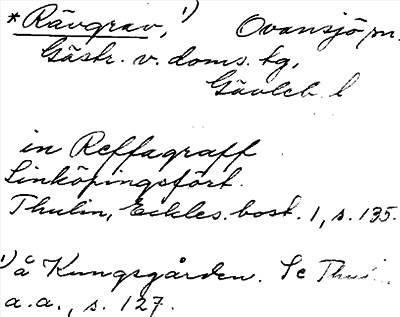 *Rävgrav,¹) Ovansjö sn.
Gästr. v. doms. tg,
Gävleb. l
in Reffagraff
Linköpingsfört.
Thulin, Eckles. bost. 1, s. 135.
¹) å Kungsgården. Se Thulin
a.a., s. 127.